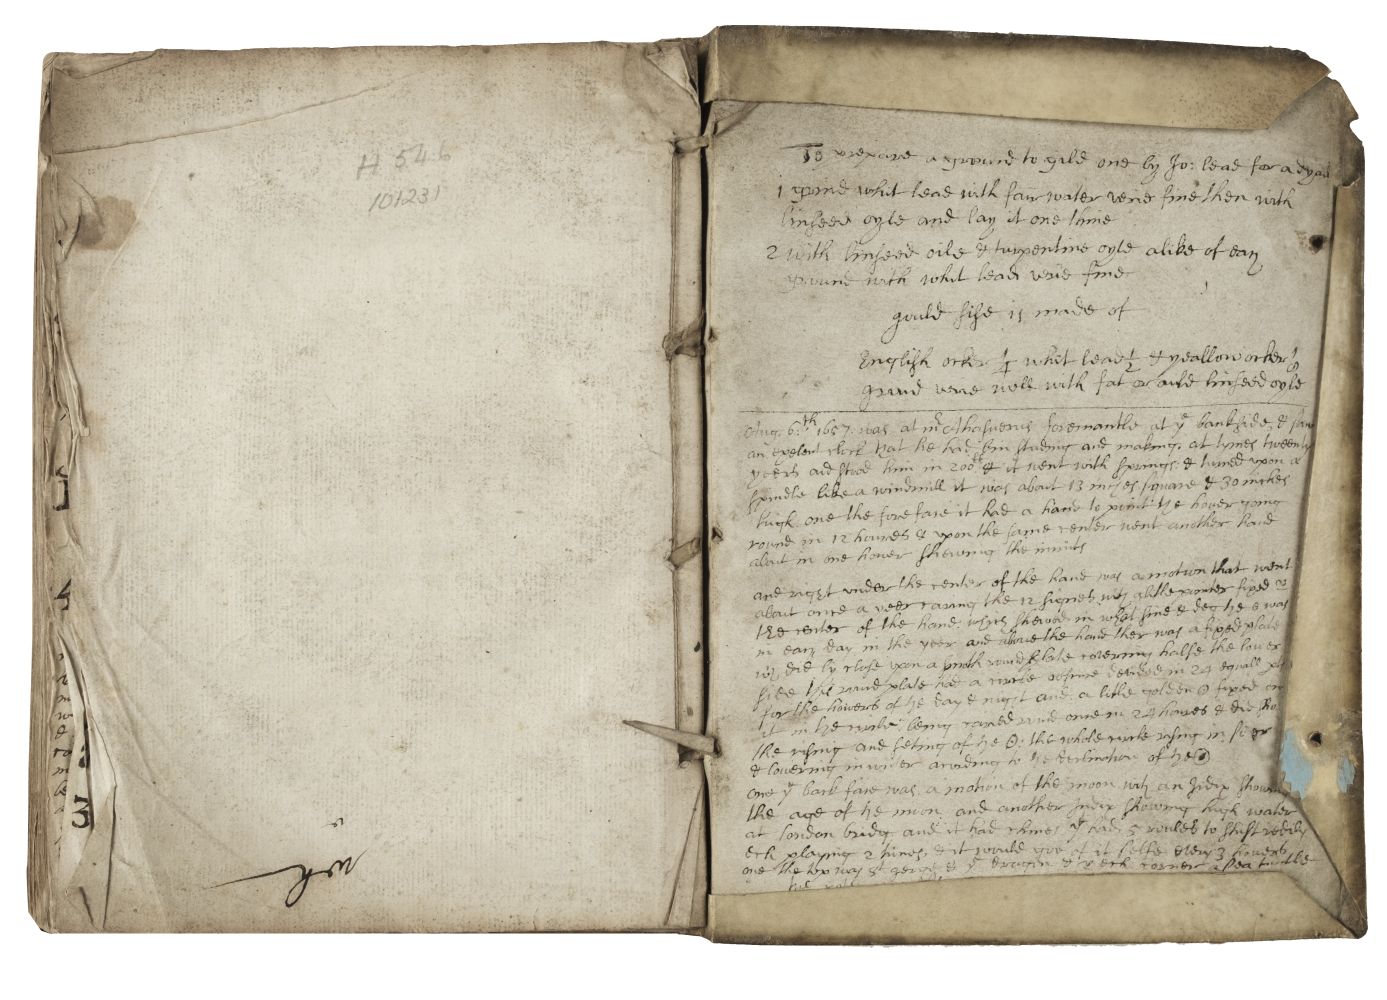 H 546
101231
To prepare a ground to gild one by Jo: lead for a dyall
1 grind whit lead with fair water verie fine then with
linseed oyle and lay it one thine
2 with linseed oile & turpentine oyle alike of each
ground with whit lead verie fine
gould sise is made of
English oeker 1/4 whit lead 1/2 & yeallow oeker 1/8
grind verie well with fat or ould linseed oyle
Aug. 6th 1657. was at mr Ahasuerus fromantle at ye bankside, & saw
an exelent clock that he had bin studing and making at tymes tweenty
years and stood him in 200ll & it went with springs. & tuned upon a
spindle like a windmill it was about 13 inches square & 30 inches
high one the fore face it had a hand to point the hower going
round in 12 houres & upon the same center went another hand
about in one hower shewing the minits
and right under the center of the hand was a motion that went
about once a yeer caring the 12 signes with a little pointer fixed
the center of the hand: which shewed in what sine & deg the was
in each day in the yeer and above the hand ther was a fixed plate
did ly close upon a round plate covering halfe the lower
side this round plate had a devided in 24 equall
for the howers of the day & night and a little golden ☉ fixed
it in the being caried round once in 24 houres & did
the rising and seting of the ☉: the whole rising in
& lowering in winter acording to the declination of the ☉
one ye back face was a motion of the moon with an Index showing
the age of the moon and another Index showing high water
at london bridg and it had chimes yt had 5 to shift redily
ech playing 2 tunes & it would goe of it selfe every 3 howers
one the top was St george & ye dragon & corner a